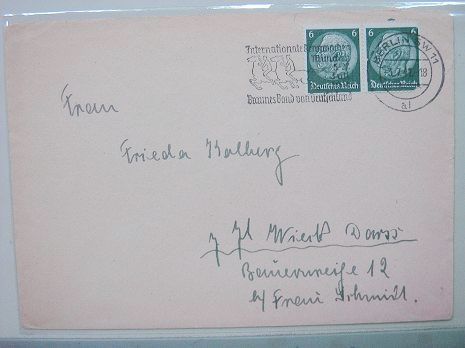 6 6
Internationale Rennwochen
München
Braunes Band von Deutschland
BERLIN SW 11
18
al
Deutsches Reich Deutsches Reich
Frau
Frieda Kolberg
z. Zt. Darss
12
b/ Frau Schmidt.